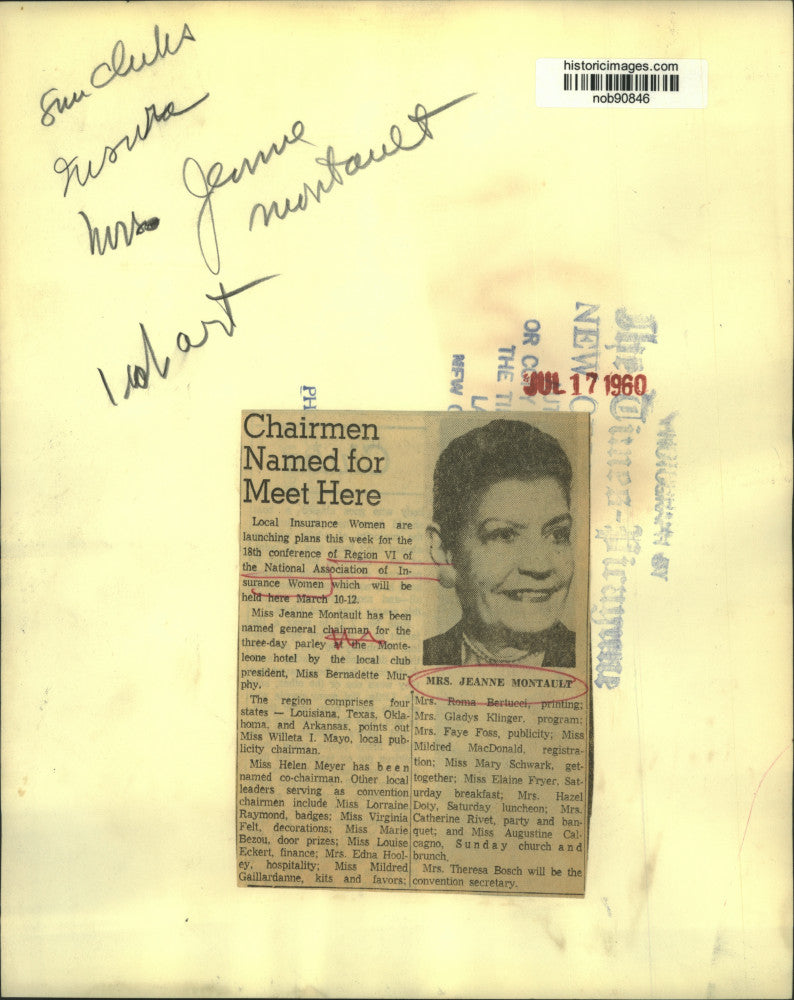 historicimages.com
nob90846
Sun Clubs
Insura
Mrs. Jeanne
Montault
1 col art
JUL 17 1960
The Times-Picayune
NEW O
OR C
THE TI
NEW O
PH
Chairmen
Named for
Meet Here
Local Insurance Women are
launching plans this week for the
18th conference of Region VI of
the National Association of In-
surance Women which will be
held here March 10-12.
Miss Jeanne Montault has been
named general chairman for the
three-day parley at the Monte-
leone hotel by the local club
president, Miss Bernadette Mur-
phy.
The region comprises four
states — Louisiana, Texas, Okla-
homa, and Arkansas, points out
Miss Willeta I. Mayo, local pub-
licity chairman.
Miss Helen Meyer has been
named co-chairman. Other local
leaders serving as convention
chairmen include Miss Lorraine
Raymond, badges; Miss Virginia
Felt, decorations; Miss Marie
Bezou, door prizes; Miss Louise
Eckert, finance; Mrs. Edna Hool-
ey, hospitality; Miss Mildred
Gaillardanne, kits and favors;
MRS. JEANNE MONTAULT
Mrs. Roma Bertucci, printing;
Mrs. Gladys Klinger, program;
Mrs. Faye Foss, publicity; Miss
Mildred MacDonald, registra-
tion; Miss Mary Schwark, get-
together; Miss Elaine Fryer, Sat-
urday breakfast; Mrs. Hazel
Doty, Saturday luncheon; Mrs.
Catherine Rivet, party and ban-
quet; and Miss Augustine Cal-
cagno, Sunday church and
brunch.
Mrs. Theresa Bosch will be the
convention secretary.